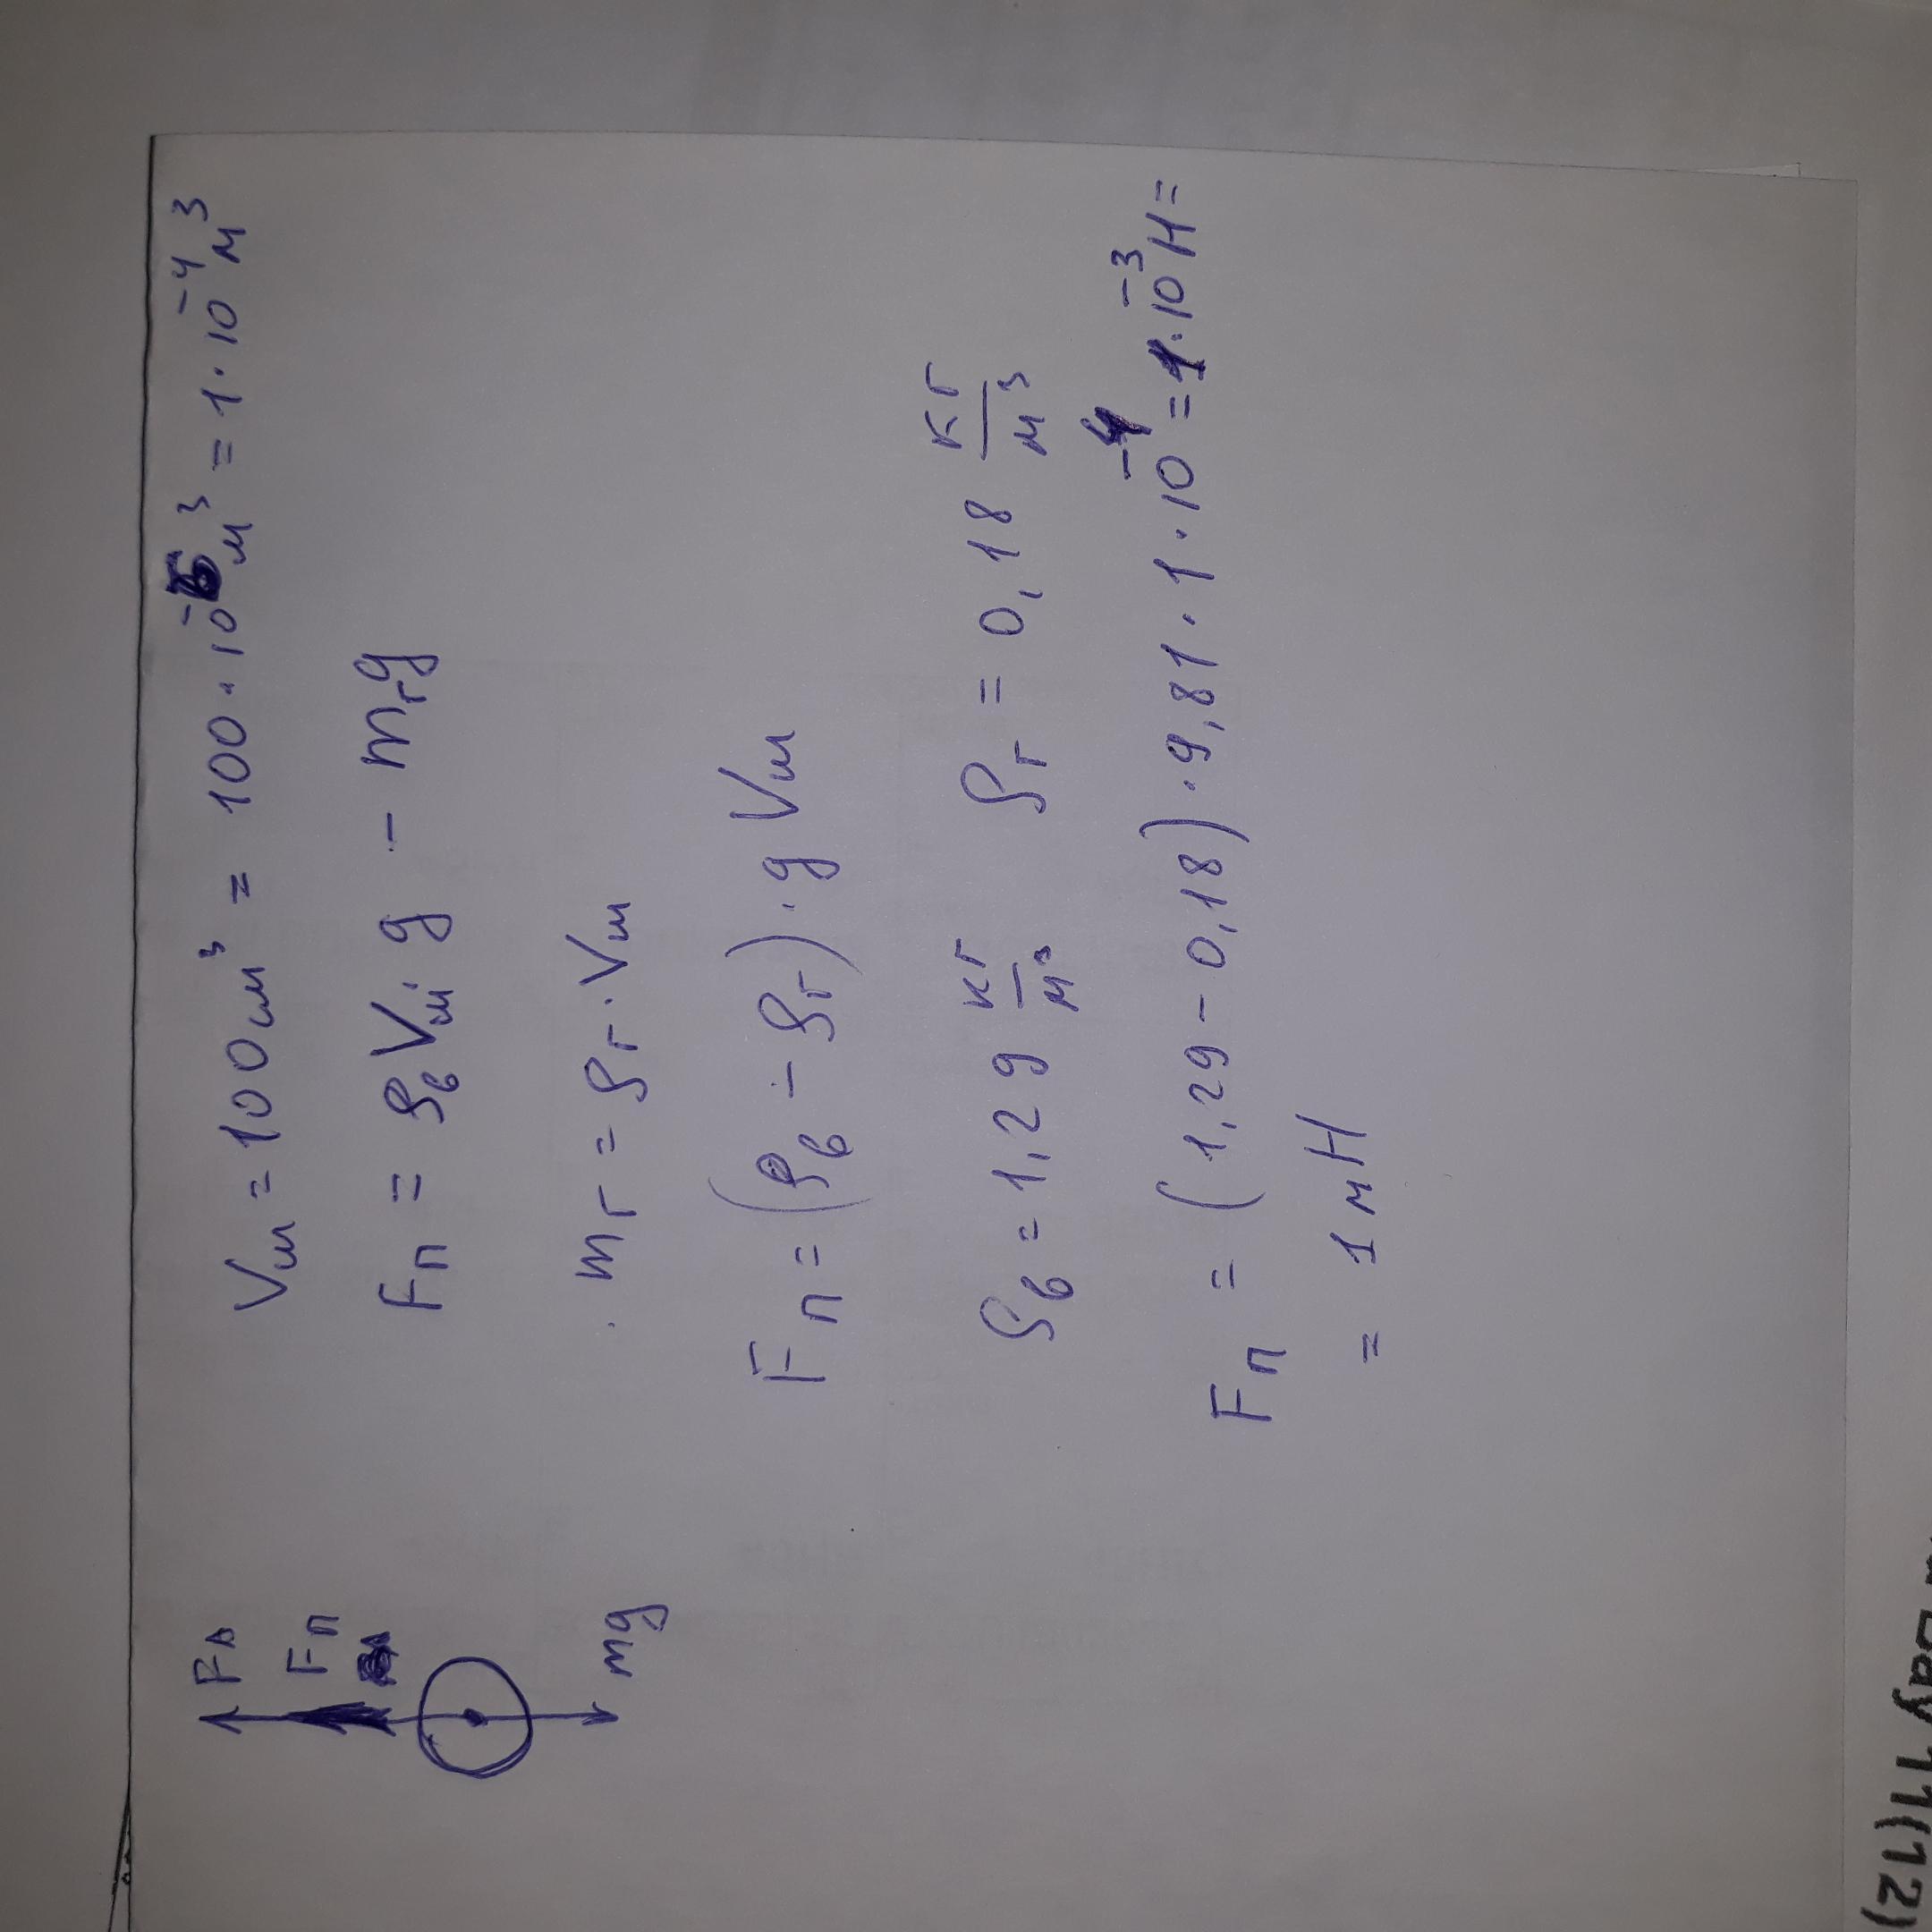 Vш = 100 см³ = 100 · 10⁻⁶ м³ = 1 · 10⁻⁴ м³
Fп = ρв Vш · g − mг g
mг = ρг · Vш
Fп = (ρв − ρг) · g Vш
ρв = 1,29 кг/м³ ρг = 0,18 кг/м³
Fп = (1,29 − 0,18) · 9,81 · 1 · 10⁻⁴ = 1 · 10⁻³ Н =
= 1 мН
FА
Fп
mg
Bay 11(12)